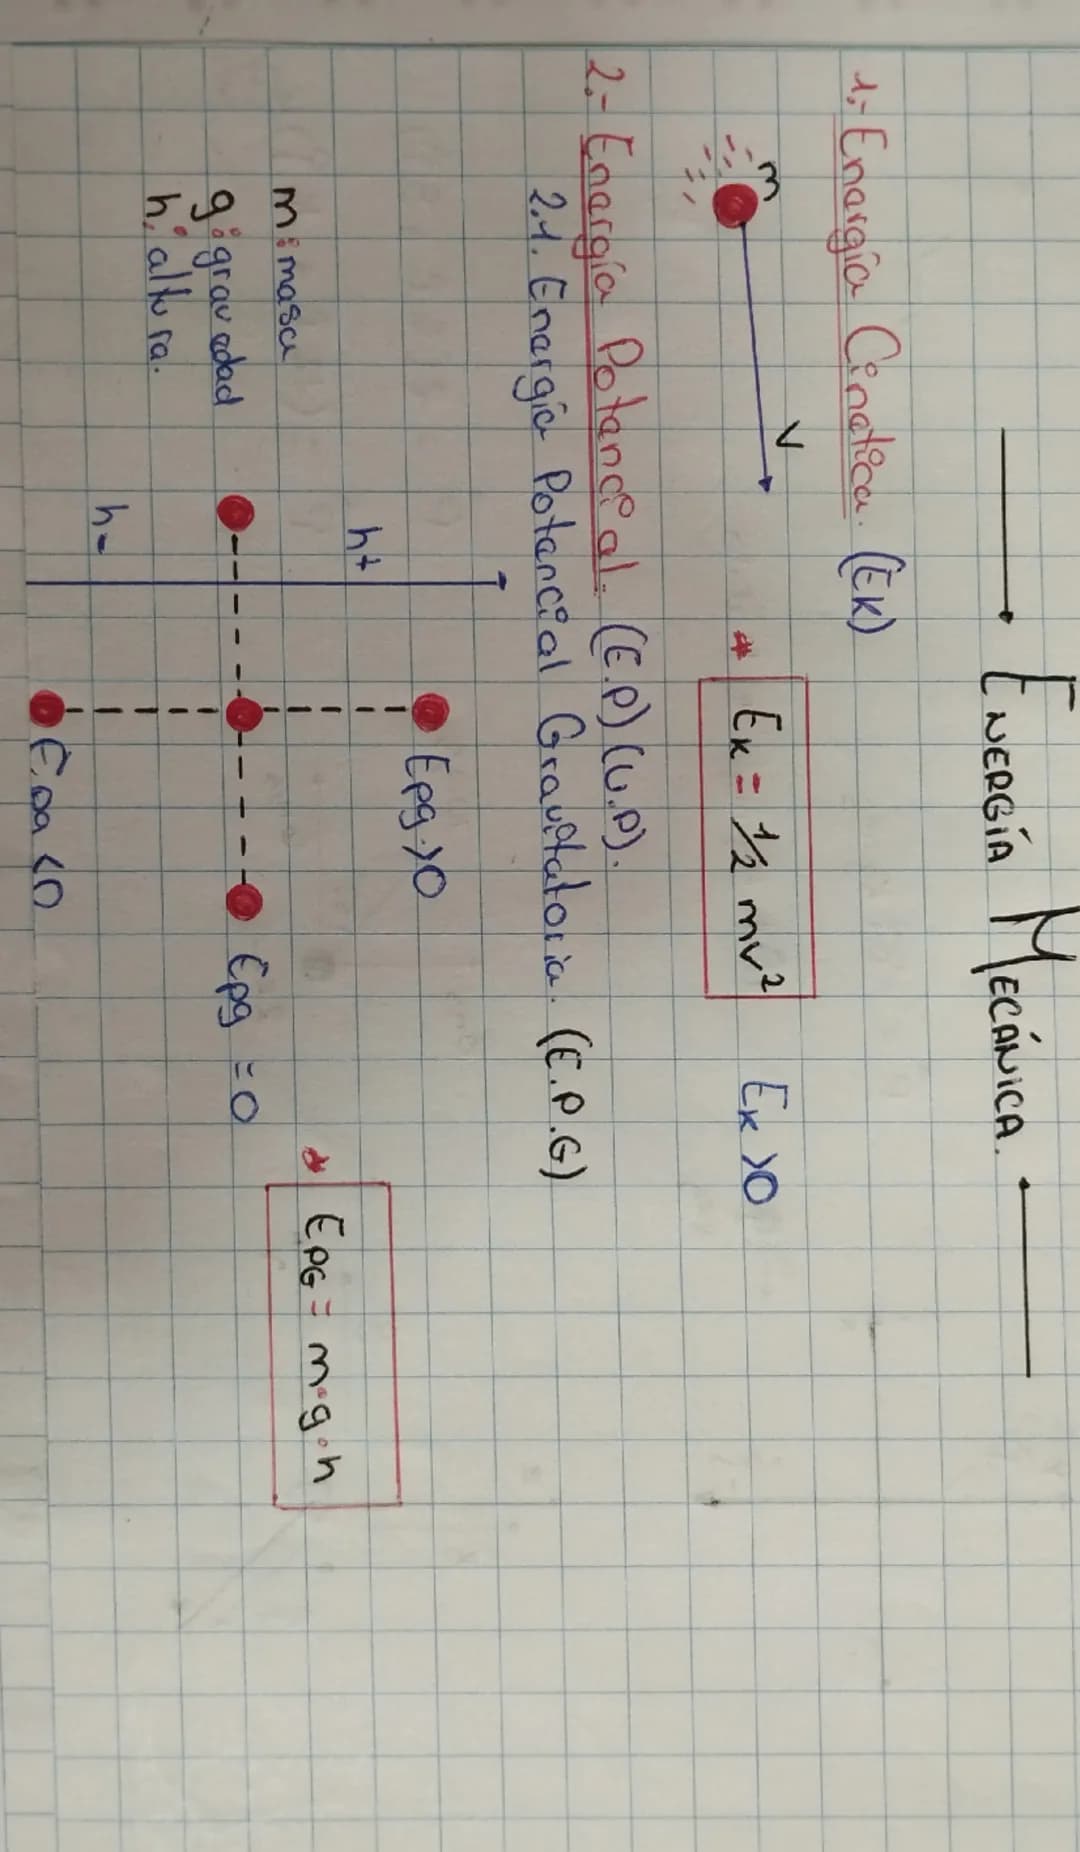 ENERGÍA MECÁNICA.
1.- Energía Cinetica. (EK)
m
V
* EK = 1/2 mv² EK >0
2.- Energía Potencial. (E.P) (U.P).
2.1. Energía Potencial Gravitatoria. (E.P.G)
Epg >0
h+
m: masa
* EPG = m·g·h
g: gravedad
Epg = 0
h: altura.
h-
Epg <0